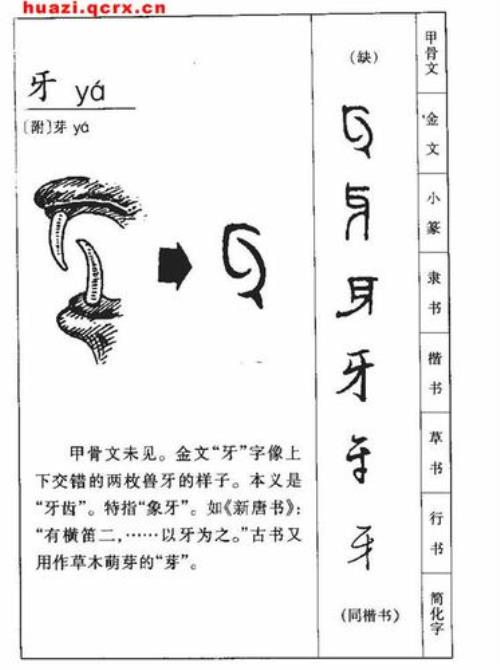 huazi.qcrx.cn
牙 yá
〔附〕芽 yá
甲骨文未见。金文“牙”字像上
下交错的两枚兽牙的样子。本义是
“牙齿”。特指“象牙”。如《新唐书》：
“有横笛二，……以牙为之。”古书又
用作草木萌芽的“芽”。
（缺）
牙
牙
牙
牙
牙
牙
（同楷书）
甲骨文
金文
小篆
隶书
楷书
草书
行书
简化字